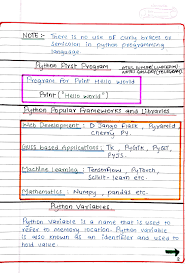 NOTE: There is no use of curly braces or
semicolon in python programming
language.
Python First Program
Program for Print Hello World
Print ("Hello world")
Python Popular Frameworks and Libraries
Web Development : D Jango Flask, Pyramid
Cherry Py.
GUIs based Applications : TK, PyGTK, PyQT,
PyJS.
Machine Learning : Tensorflow, PyTorch,
Scikit-learn etc.
Mathematics : Numpy, pandas etc.
Python Variables
Python Variable is a name that is used to
refer to memory location. Python Variable
is also known as an identifier and used to
hold value.